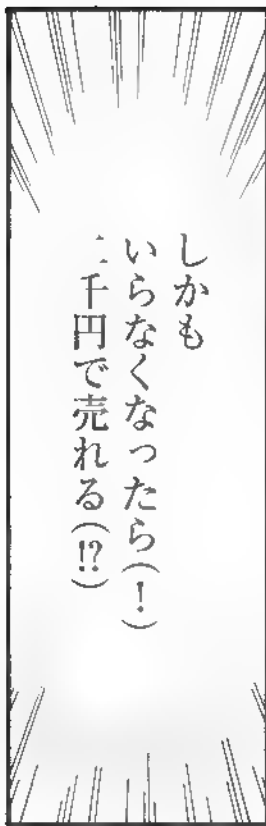 しかも
いらなくなったら(!)
二千円で売れる(!?)